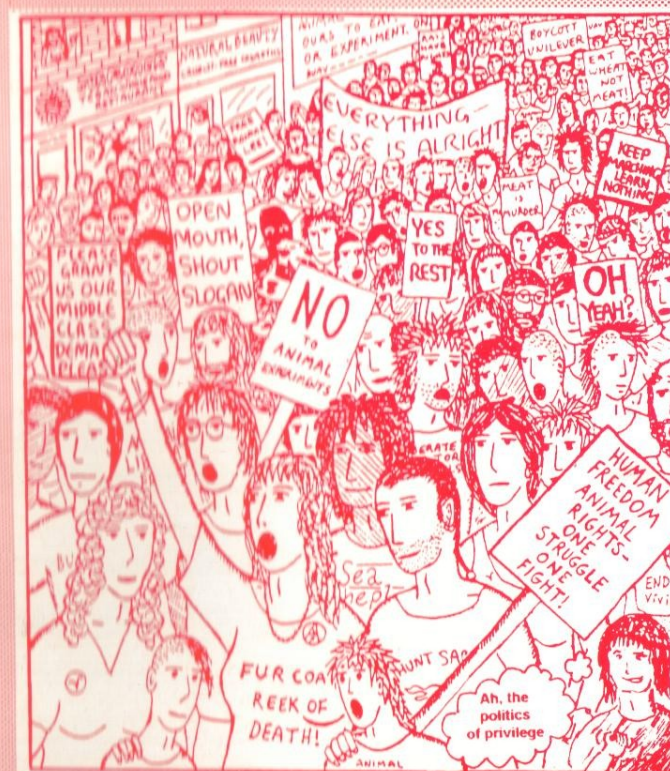 NATURAL BEAUTY
OURS TO EAT, ON
OR EXPERIMENT.
BOYCOTT
UNILEVER
EAT
WHEAT
NOT
MEAT!
EVERYTHING
ELSE IS ALRIGHT
KEEP
MARCHING
LEARN
NOTHING
MEAT
IS
MURDER
OPEN
MOUTH,
SHOUT
SLOGAN
YES
TO THE
REST
PLEASE
GRANT
US OUR
MIDDLE
CLASS
OH
YEAH?
NO
TO
ANIMAL
EXPERIMENTS
HUMAN
FREEDOM
ANIMAL
RIGHTS-
ONE
STRUGGLE
ONE
FIGHT!
Sea
END
HUNT
FUR COAT
REEK OF
DEATH!
ANIMAL
Ah, the
politics
of privilege